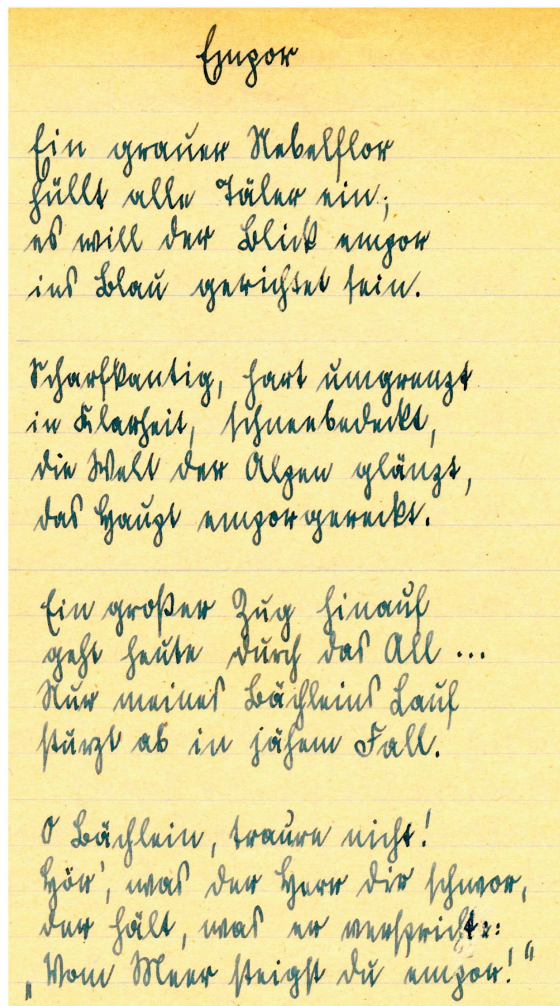 Empor
Ein grauer Nebelflor
hüllt alle Täler ein;
es will der Blick empor
ins Blau gerichtet sein.
Scharfkantig, hart umgrenzt
in Klarheit, schneebedeckt,
die Welt der Alpen glänzt,
das Haupt emporgereckt.
Ein großer Zug hinauf
geht heute durch das All ...
Nur meines Bächleins Lauf
stürzt ab in jähem Fall.
O Bächlein, traure nicht!
Hör', was der Herr dir schwor,
der hält, was er verspricht:
„Vom Meer steigst du empor!"